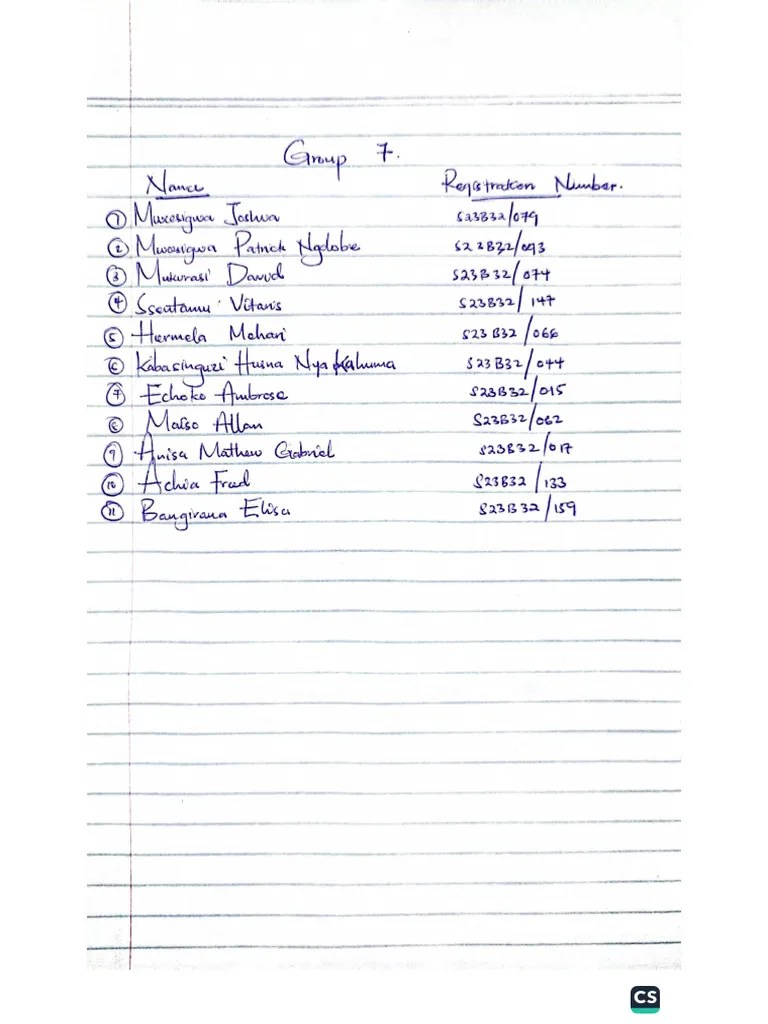 Group 7.
Name Registration Number.
① Muwesigwa Joshua S23B32/079
② Mwesigwa Patrick Ngdobe S23B32/093
③ Mukurasi David S23B32/074
④ Ssentamu Vitaris S23B32/147
⑤ Hermela Mehari S23B32/066
⑥ Kabasinguzi Husna Nyakahuma S23B32/044
⑦ Echoko Ambrose S23B32/015
⑧ Allan S23B32/062
⑨ Anisa Mathew Gabriel S23B32/017
⑩ Achia Fred S23B32/133
⑪ Bangirana Elisa S23B32/159
CS